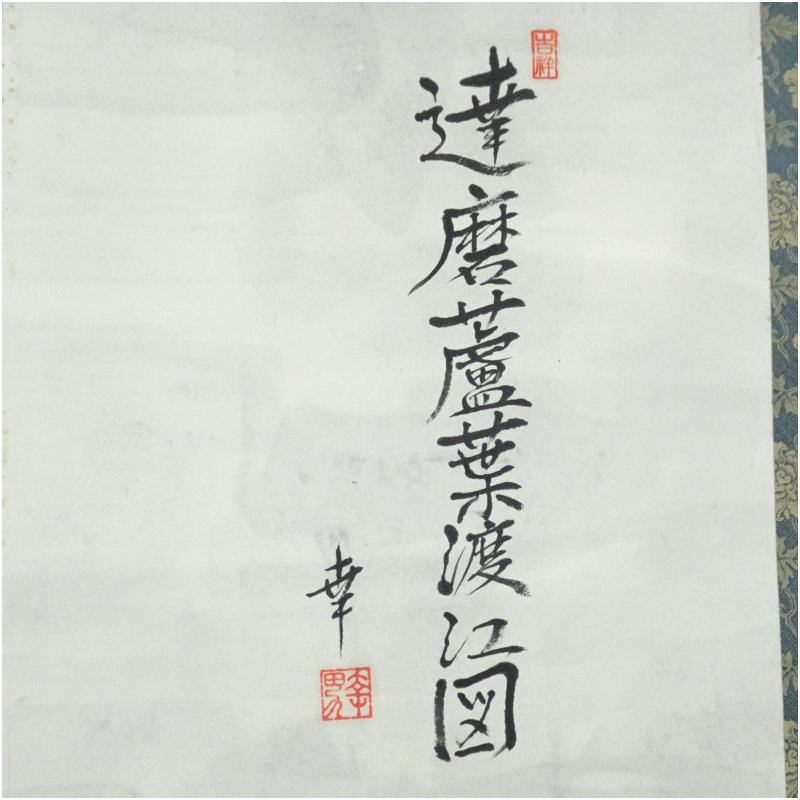 吉祥
達磨蘆葉渡江図
幸